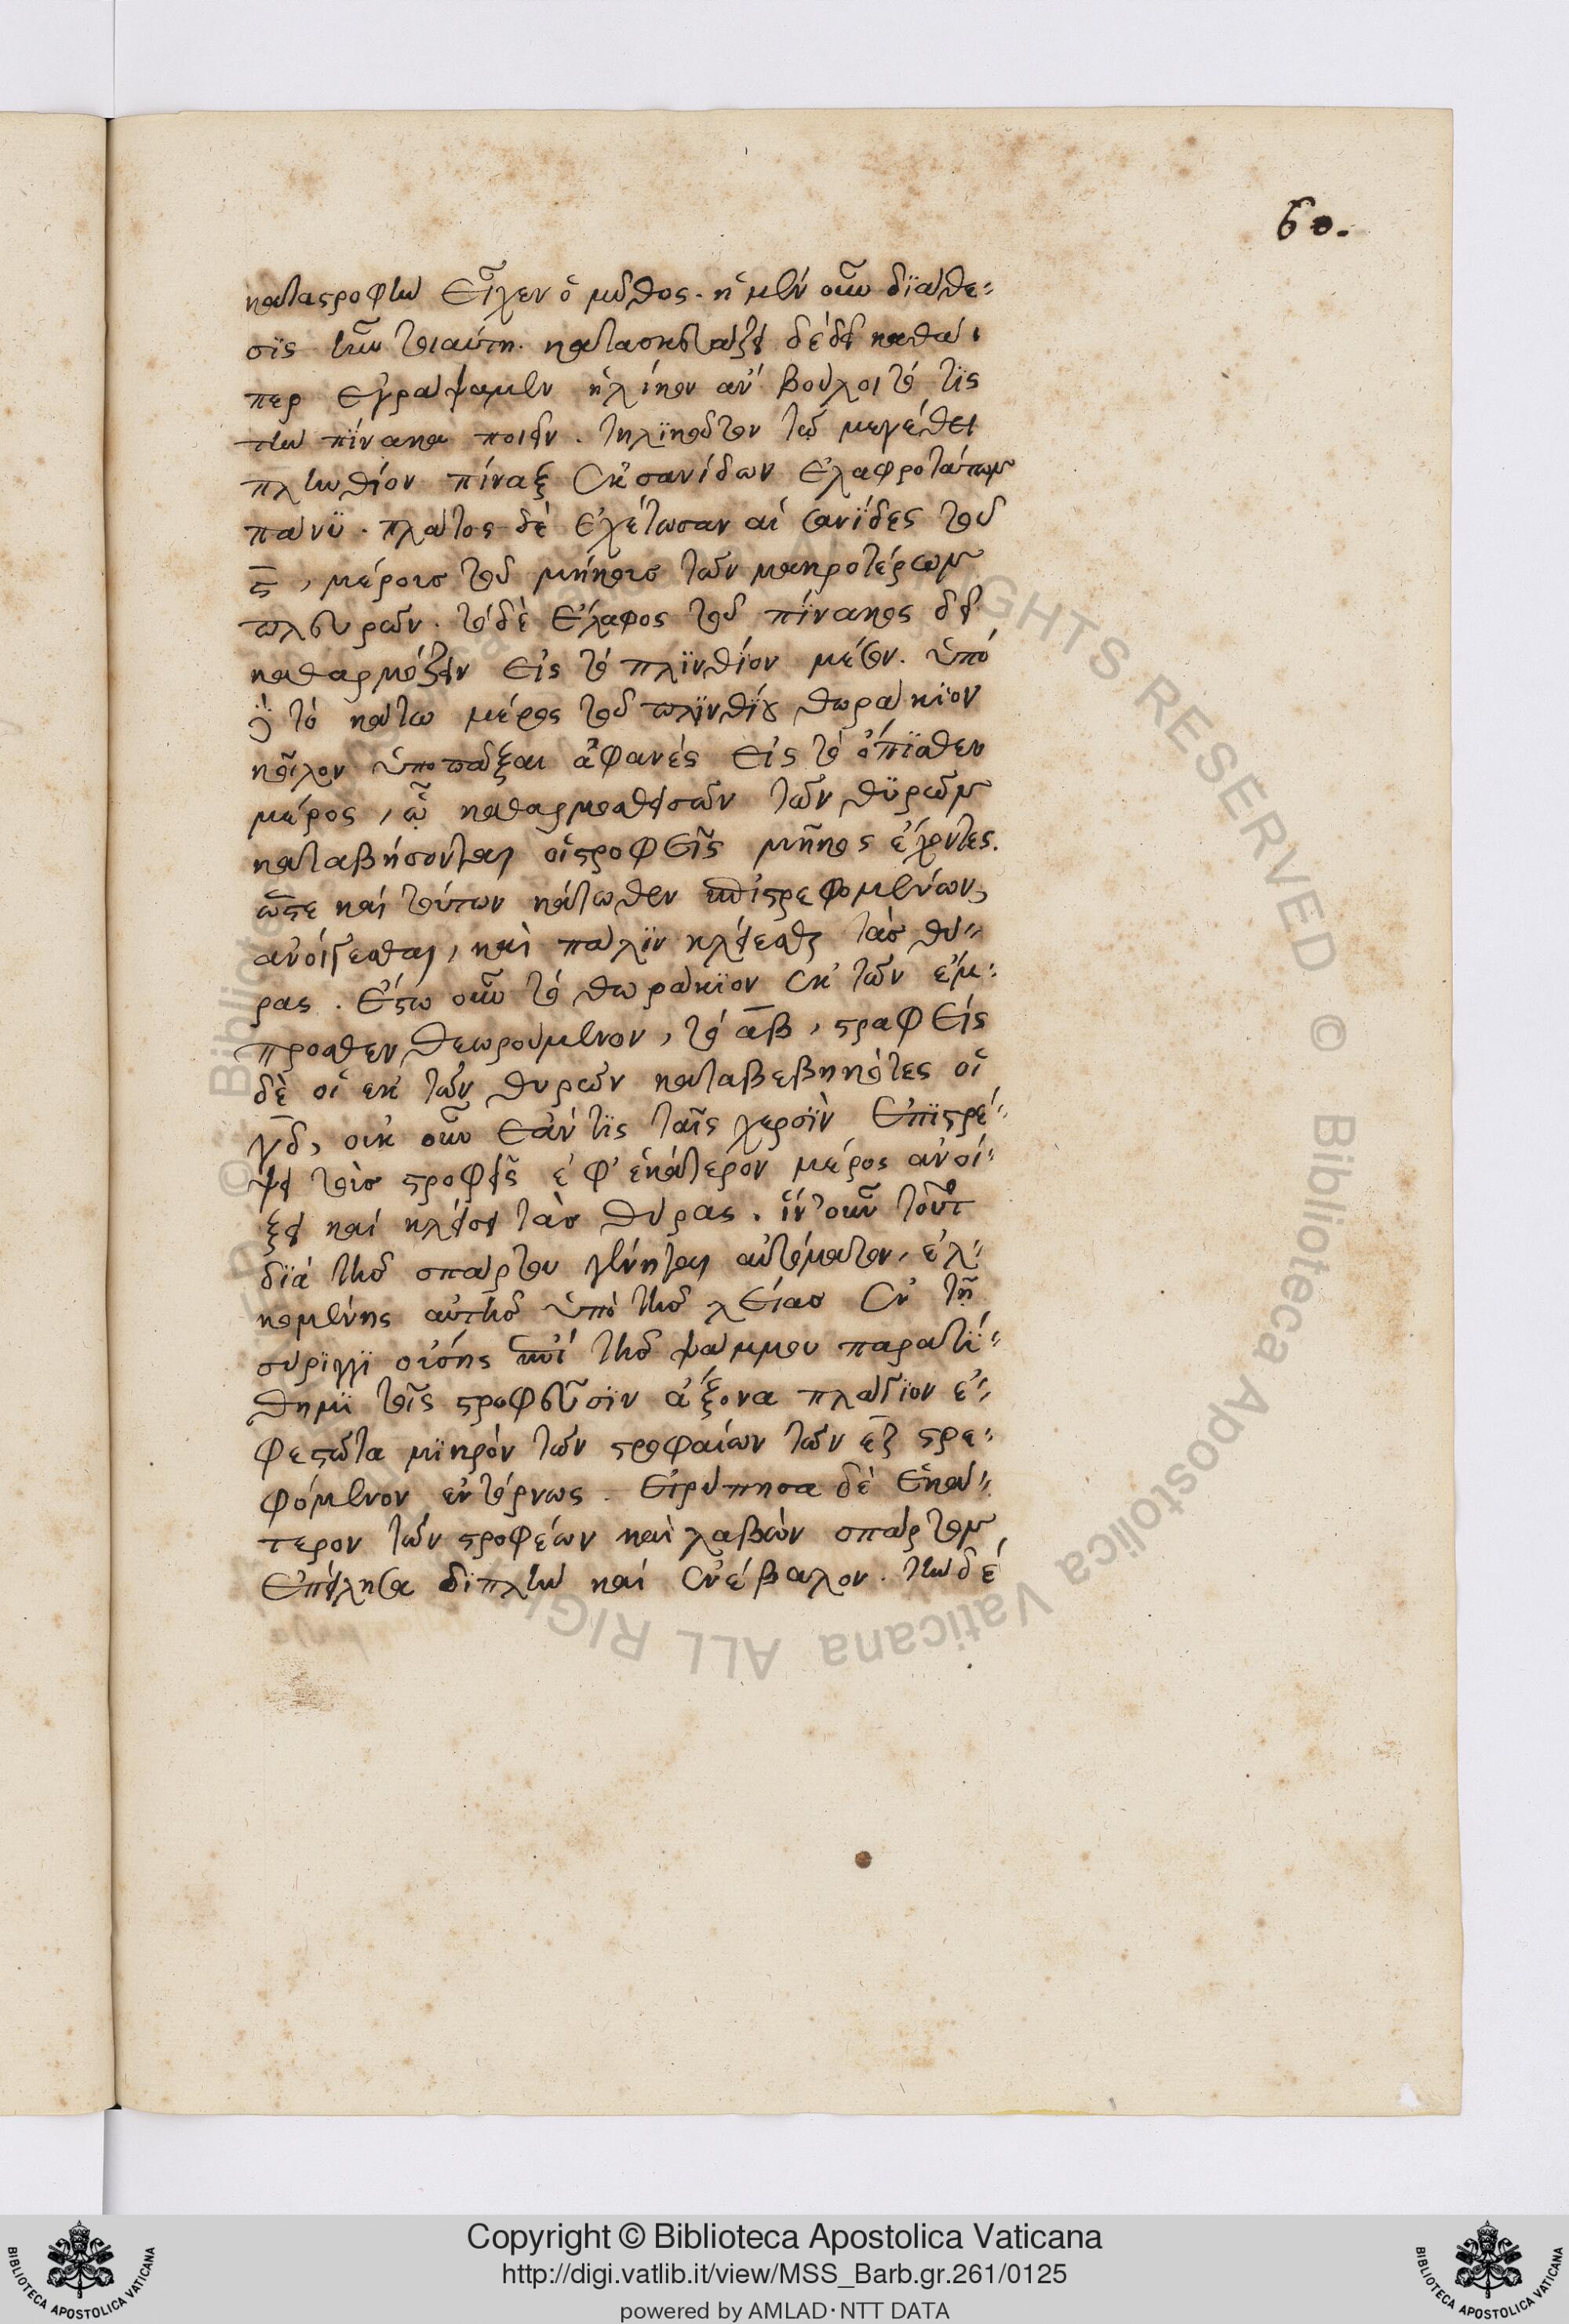 60.
καταστροφὴν εἶχεν ὁ μῦθος. ἡ μὲν οὖν διάθε-
σις ἦν τοιαύτη. κατασκευάζει δὲ δεῖ καθά-
περ ἐγράψαμεν ἡλίκον ἂν βούλοιτό τις
τὸν πίνακα ποιεῖν. τηλικοῦτον τῷ μεγέθει
πλινθίον πίναξ ἐκ σανίδων ἐλαφροτάτων
πάνυ. πλάτος δὲ ἐχέτωσαν αἱ σανίδες τοῦ
ϛ, μέροισ τοῦ μήκοισ τῶν μακροτέρων
πλευρῶν. τὸ δὲ ἔλαφος τοῦ πίνακος δεῖ
καθαρμόζειν εἰς τὸ πλινθίον μέσον. ὑπὸ
δὲ τὸ κάτω μέρος τοῦ πλινθίου θωράκιον
κοῖλον ὑποπᾶξαι ἀφανές εἰς τὸ ὄπισθεν
μέρος, ᾧ καθαρμοσθεισῶν τῶν θυρῶν
καταβήσονται οἱ στροφεῖς μῆκος ἔχοντες.
ὥστε καὶ τούτων κάτωθεν ἐπιστρεφομένων,
ἀνοίγεσθαι, καὶ πάλιν κλείεσθαι τὰσ θύ-
ρας. ἔστω οὖν τὸ θωράκιον ἐκ τῶν ἔμ-
προσθεν θεωρούμενον, τὸ αβ, στραφεῖς
δὲ οἱ ἐκ τῶν θυρῶν καταβεβηκότες οἱ
γδ, οὐκ οὖν ἐάν τις ταῖς χερσὶν ἐπιστρέ-
ψει τοὺσ στροφεῖς ἐφ' ἑκάτερον μέρος ἀνοί-
ξει καὶ κλείσει τὰσ θύρας. ἵν' οὖν τοῦτο
διὰ τῆσ σπάρτου γένηται αὐτόματον, ἑλ-
κομένης αὐτῆσ ὑπὸ τῆσ λείασ ἐν τῇ
σύριγγι οὔσης ἐπὶ τῆσ ψάμμου παρατί-
θημι τοῖς στροφεῦσιν ἄξονα πλάγιον ἐ-
φεστῶτα μικρὸν τῶν στροφαίων τῶν ἐξ στρε-
φόμενον ἐντόρνως. ἐτρύπησα δὲ ἑκά-
τερον τῶν στροφέων καὶ λαβὼν σπάρτον
ἐπείλησα διπλῆν καὶ ἐνέβαλον. τὴν δὲ
Copyright © Biblioteca Apostolica Vaticana
http://digi.vatlib.it/view/MSS_Barb.gr.261/0125
powered by AMLAD·NTT DATA